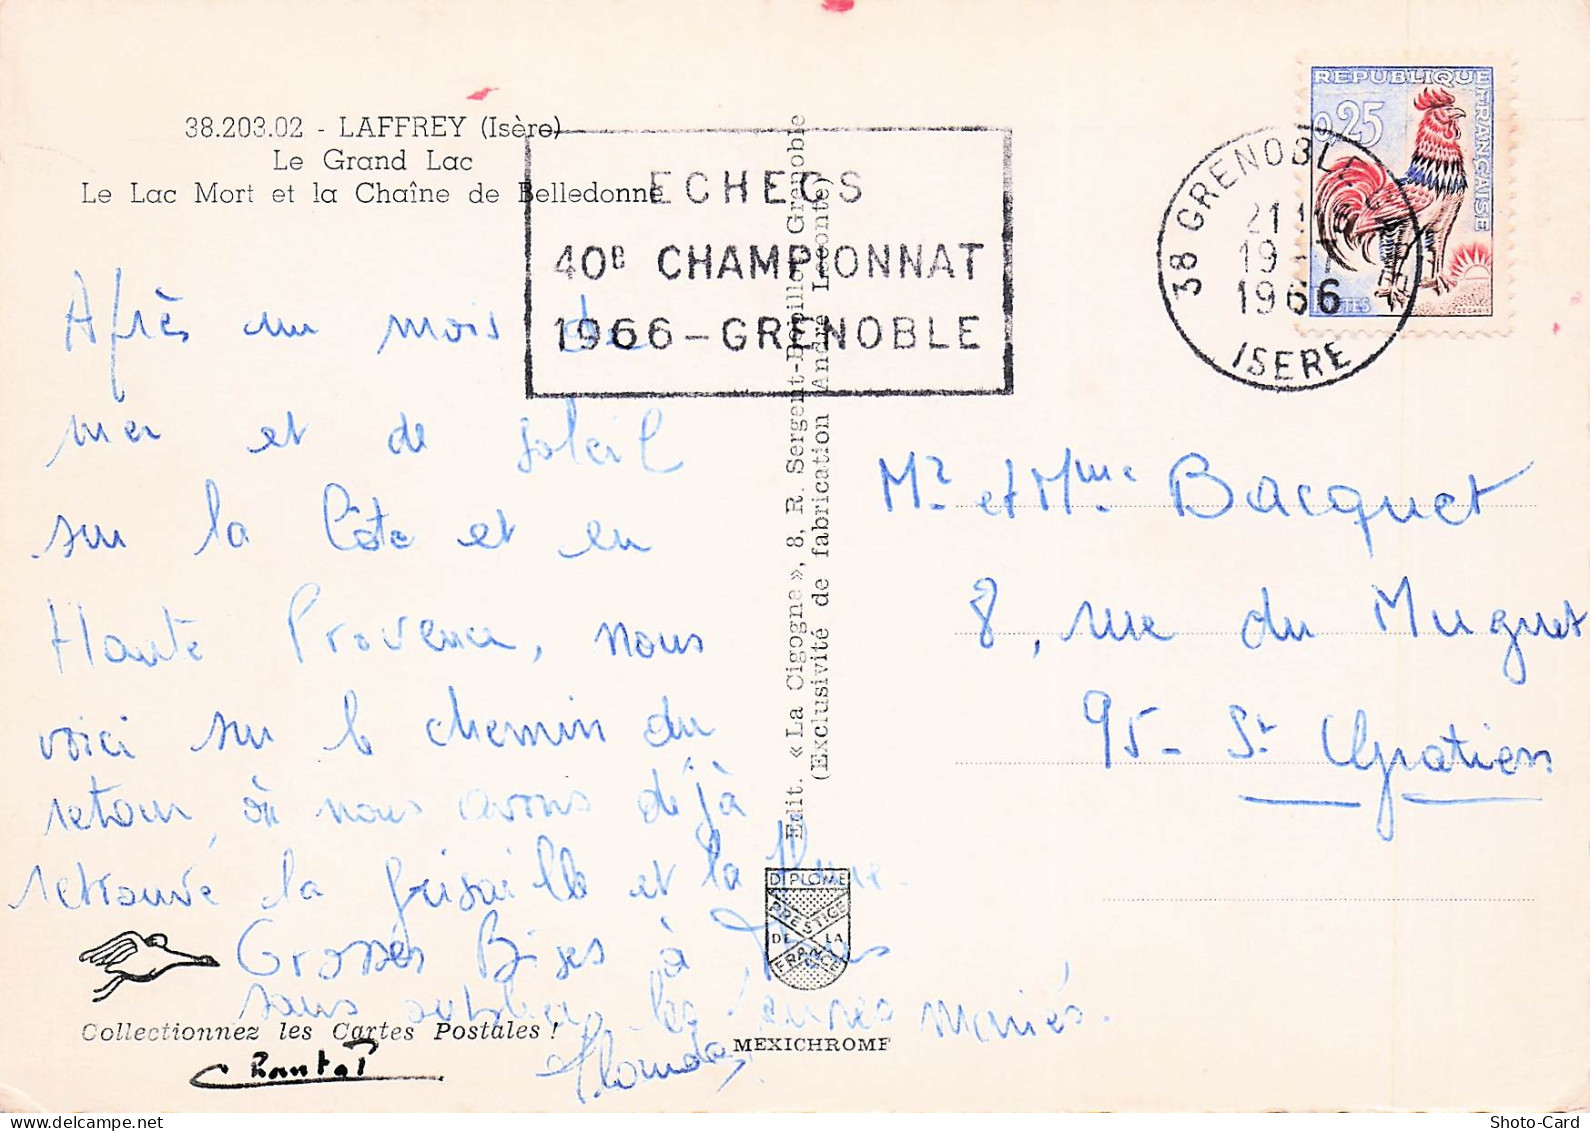 38.203.02 - LAFFREY (Isère)
Le Grand Lac
Le Lac Mort et la Chaîne de Belledonne
ECHECS
40e CHAMPIONNAT
1966 - GRENOBLE
38 GRENOBLE
21
19 -
1966
ISERE
REPUBLIQUE FRANÇAISE
0,25
POSTES
Après un mois de
mer et de soleil
sur la Côte et en
Haute Provence, nous
voici sur le chemin du
retour, où nous avons déjà
retrouvé la grisaille et la pluie.
Grosses Bises à Tous
sans oublier les jeunes mariés.
Chantal
Mr et Mme Bacquet
8, rue du Muguet
95 - St Gratien
Edit. « La Cigogne », 8, R. Sergent-Bobillot, Grenoble
(Exclusivité de fabrication André Leconte)
DIPLOME
PRESTIGE
DE LA
FRANCE
Collectionnez les Cartes Postales !
MEXICHROME
delcampe.net
Shoto-Card